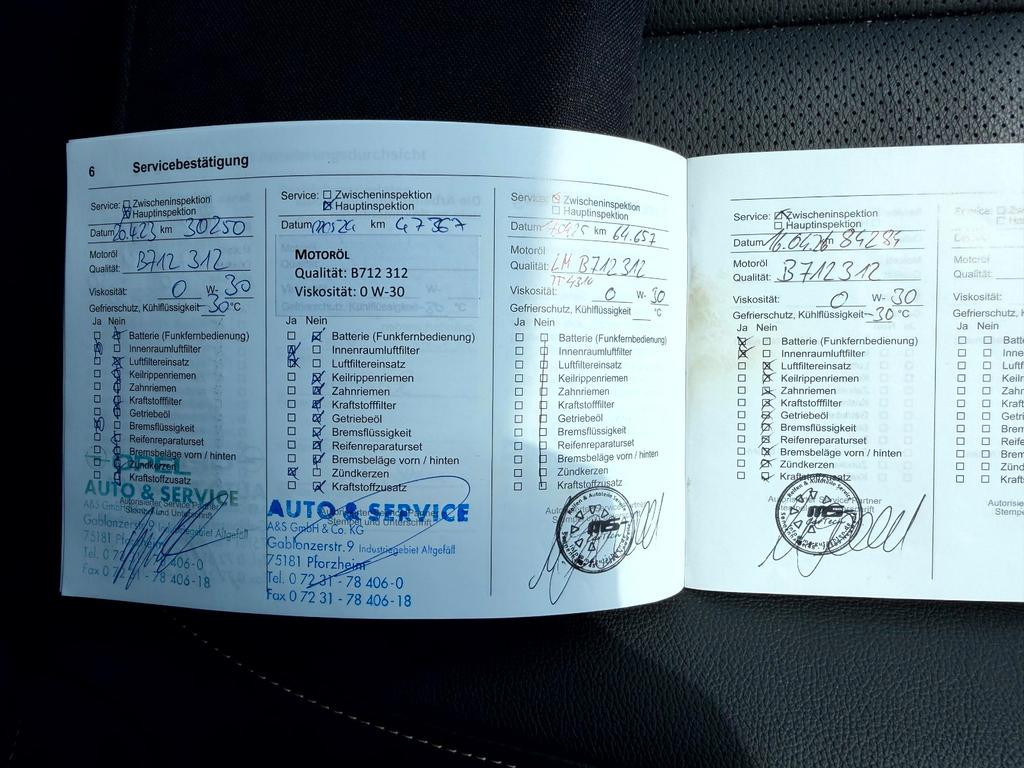 6 Servicebestätigung
Service: Zwischeninspektion
Hauptinspektion
Datum 26.4.23 km 30250
Motoröl
Qualität: B712 312
Viskosität: 0 W- 30
Gefrierschutz, Kühlflüssigkeit -30 °C
Ja Nein
Batterie (Funkfernbedienung)
Innenraumluftfilter
Luftfiltereinsatz
Keilrippenriemen
Zahnriemen
Kraftstofffilter
Getriebeöl
Bremsflüssigkeit
Reifenreparaturset
Bremsbeläge vorn / hinten
Zündkerzen
Kraftstoffzusatz
OPEL
AUTO & SERVICE
Autorisierter Service Partner
Stempel und Unterschrift
A&S GmbH & Co. KG
Gablonzerstr. Industriegebiet Altgefäll
75181 Pforzheim
Tel. 0 72 31 - 78 406-0
Fax 0 72 31 - 78 406-18
Service: Zwischeninspektion
Hauptinspektion
Datum km 47367
MOTORÖL
Qualität: B712 312
Viskosität: 0 W-30
Ja Nein
Batterie (Funkfernbedienung)
Innenraumluftfilter
Luftfiltereinsatz
Keilrippenriemen
Zahnriemen
Kraftstofffilter
Getriebeöl
Bremsflüssigkeit
Reifenreparaturset
Bremsbeläge vorn / hinten
Zündkerzen
Kraftstoffzusatz
AUTO & SERVICE
Stempel und Unterschrift
A&S GmbH & Co. KG
Gablonzerstr. 9 Industriegebiet Altgefäll
75181 Pforzheim
Tel. 0 72 31 - 78 406-0
Fax 0 72 31 - 78 406-18
Service: Zwischeninspektion
Hauptinspektion
Datum km 64.657
Motoröl
Qualität: LM B712312
TT 4310
Viskosität: 0 W- 30
Gefrierschutz, Kühlflüssigkeit °C
Ja Nein
Batterie (Funkfernbedienung)
Innenraumluftfilter
Luftfiltereinsatz
Keilrippenriemen
Zahnriemen
Kraftstofffilter
Getriebeöl
Bremsflüssigkeit
Reifenreparaturset
Bremsbeläge vorn / hinten
Zündkerzen
Kraftstoffzusatz
MS
Service: Zwischeninspektion
Hauptinspektion
Datum 16.04.26 km 84284
Motoröl
Qualität: B712 312
Viskosität: 0 W- 30
Gefrierschutz, Kühlflüssigkeit -30 °C
Ja Nein
Batterie (Funkfernbedienung)
Innenraumluftfilter
Luftfiltereinsatz
Keilrippenriemen
Zahnriemen
Kraftstofffilter
Getriebeöl
Bremsflüssigkeit
Reifenreparaturset
Bremsbeläge vorn / hinten
Zündkerzen
Kraftstoffzusatz
MS
Service:
Motoröl
Qualität:
Viskosität:
Gefrierschutz,
Ja Nein